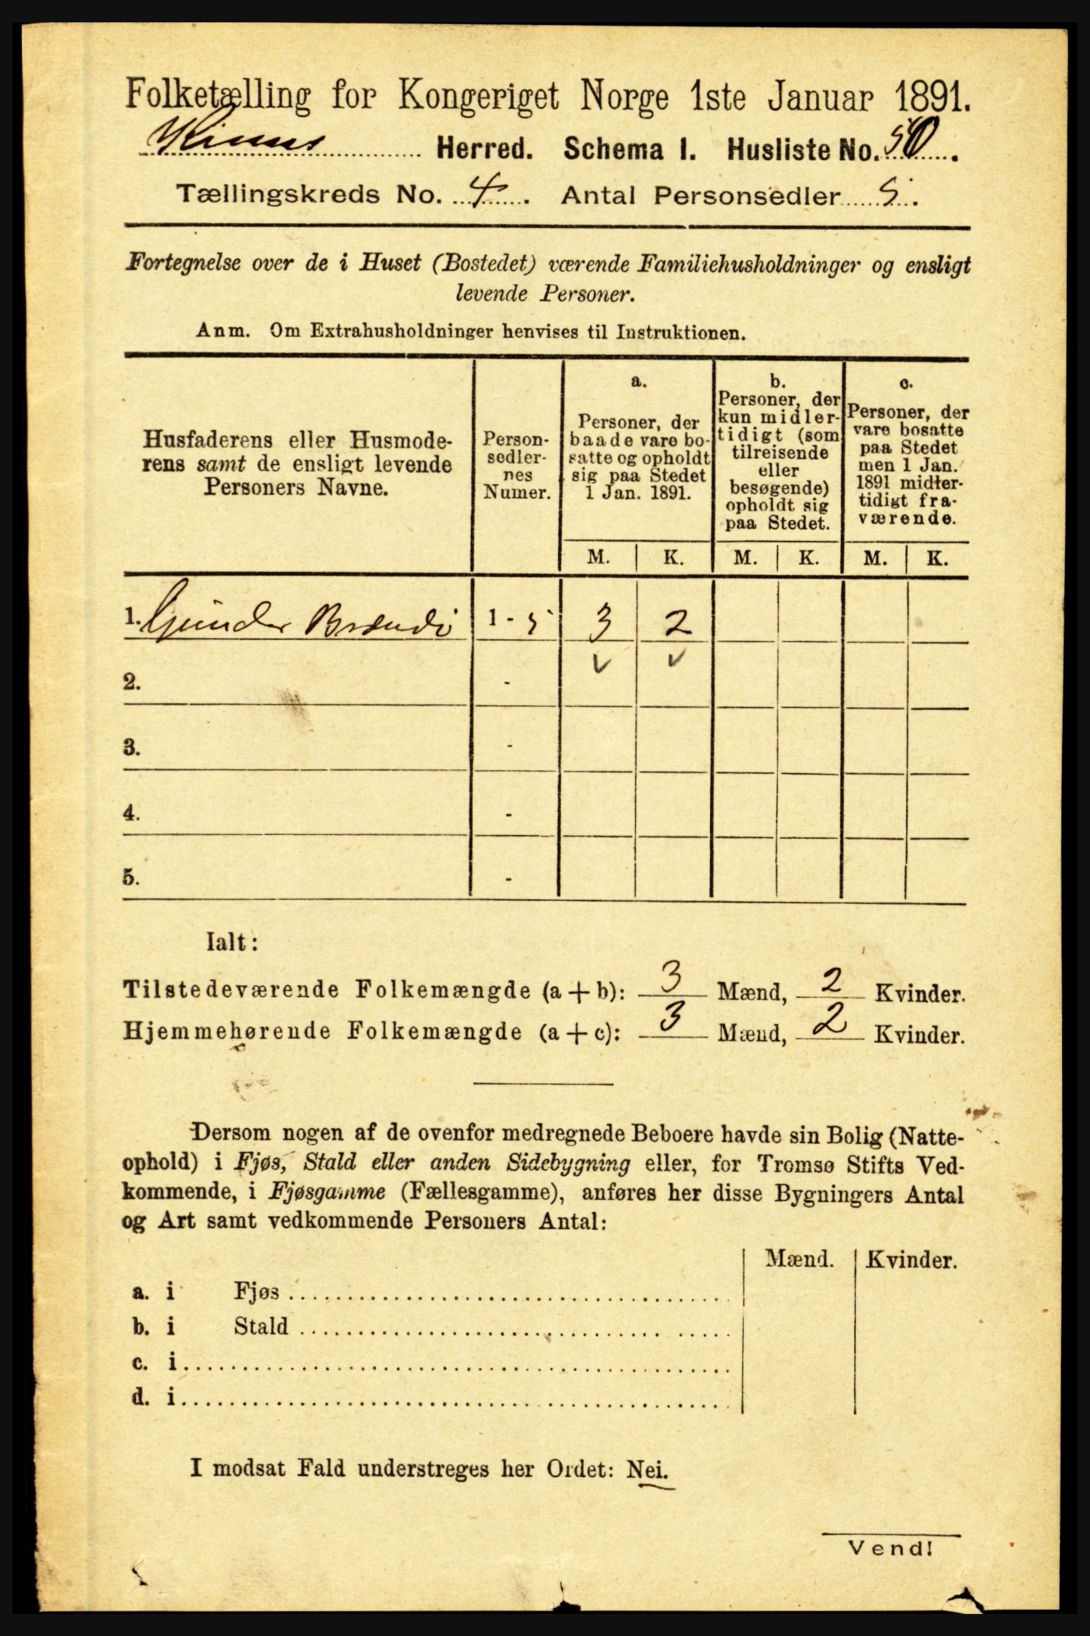 Folketælling for Kongeriget Norge 1ste Januar 1891.
Kinns Herred. Schema I. Husliste No. 50.
Tællingskreds No. 4. Antal Personsedler 5.
Fortegnelse over de i Huset (Bostedet) værende Familiehusholdninger og ensligt
levende Personer.
Anm. Om Extrahusholdninger henvises til Instruktionen.
Husfaderens eller Husmode-
rens samt de ensligt levende
Personers Navne.
Person-
sedler-
nes
Numer.
a.
Personer, der
baade vare bo-
satte og opholdt
sig paa Stedet
1 Jan. 1891.
b.
Personer, der
kun midler-
tidigt (som
tilreisende
eller
besøgende)
opholdt sig
paa Stedet.
c.
Personer, der
vare bosatte
paa Stedet
men 1 Jan.
1891 midler-
tidigt fra-
værende.
M. K. M. K. M. K.
1. Gunder Brændø 1 - 5 3 2
2. -
3. -
4. -
5. -
Ialt:
Tilstedeværende Folkemængde (a + b): 3 Mænd, 2 Kvinder.
Hjemmehørende Folkemængde (a + c): 3 Mænd, 2 Kvinder.
Dersom nogen af de ovenfor medregnede Beboere havde sin Bolig (Natte-
ophold) i Fjøs, Stald eller anden Sidebygning eller, for Tromsø Stifts Ved-
kommende, i Fjøsgamme (Fællesgamme), anføres her disse Bygningers Antal
og Art samt vedkommende Personers Antal:
Mænd. Kvinder.
a. i Fjøs
b. i Stald
c. i
d. i
I modsat Fald understreges her Ordet: Nei.
Vend!